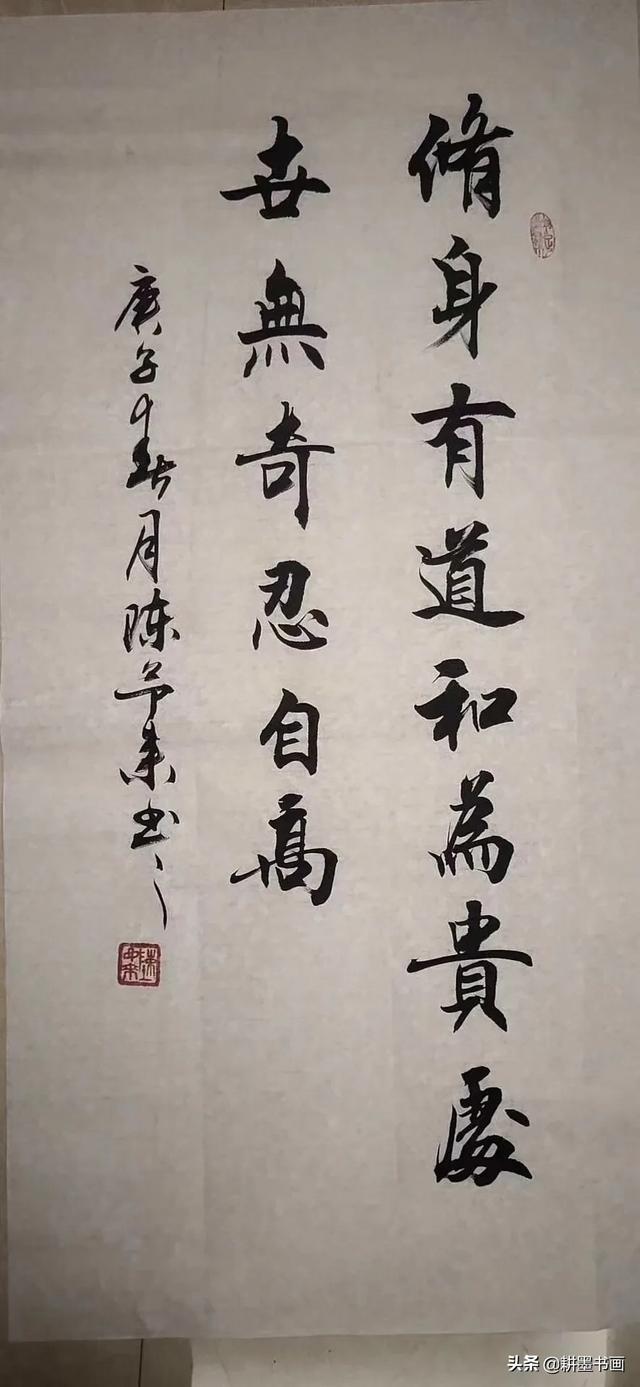 脩身有道和為貴處
世無奇忍自高
庚子年春月陈
书
头条 @耕墨书画